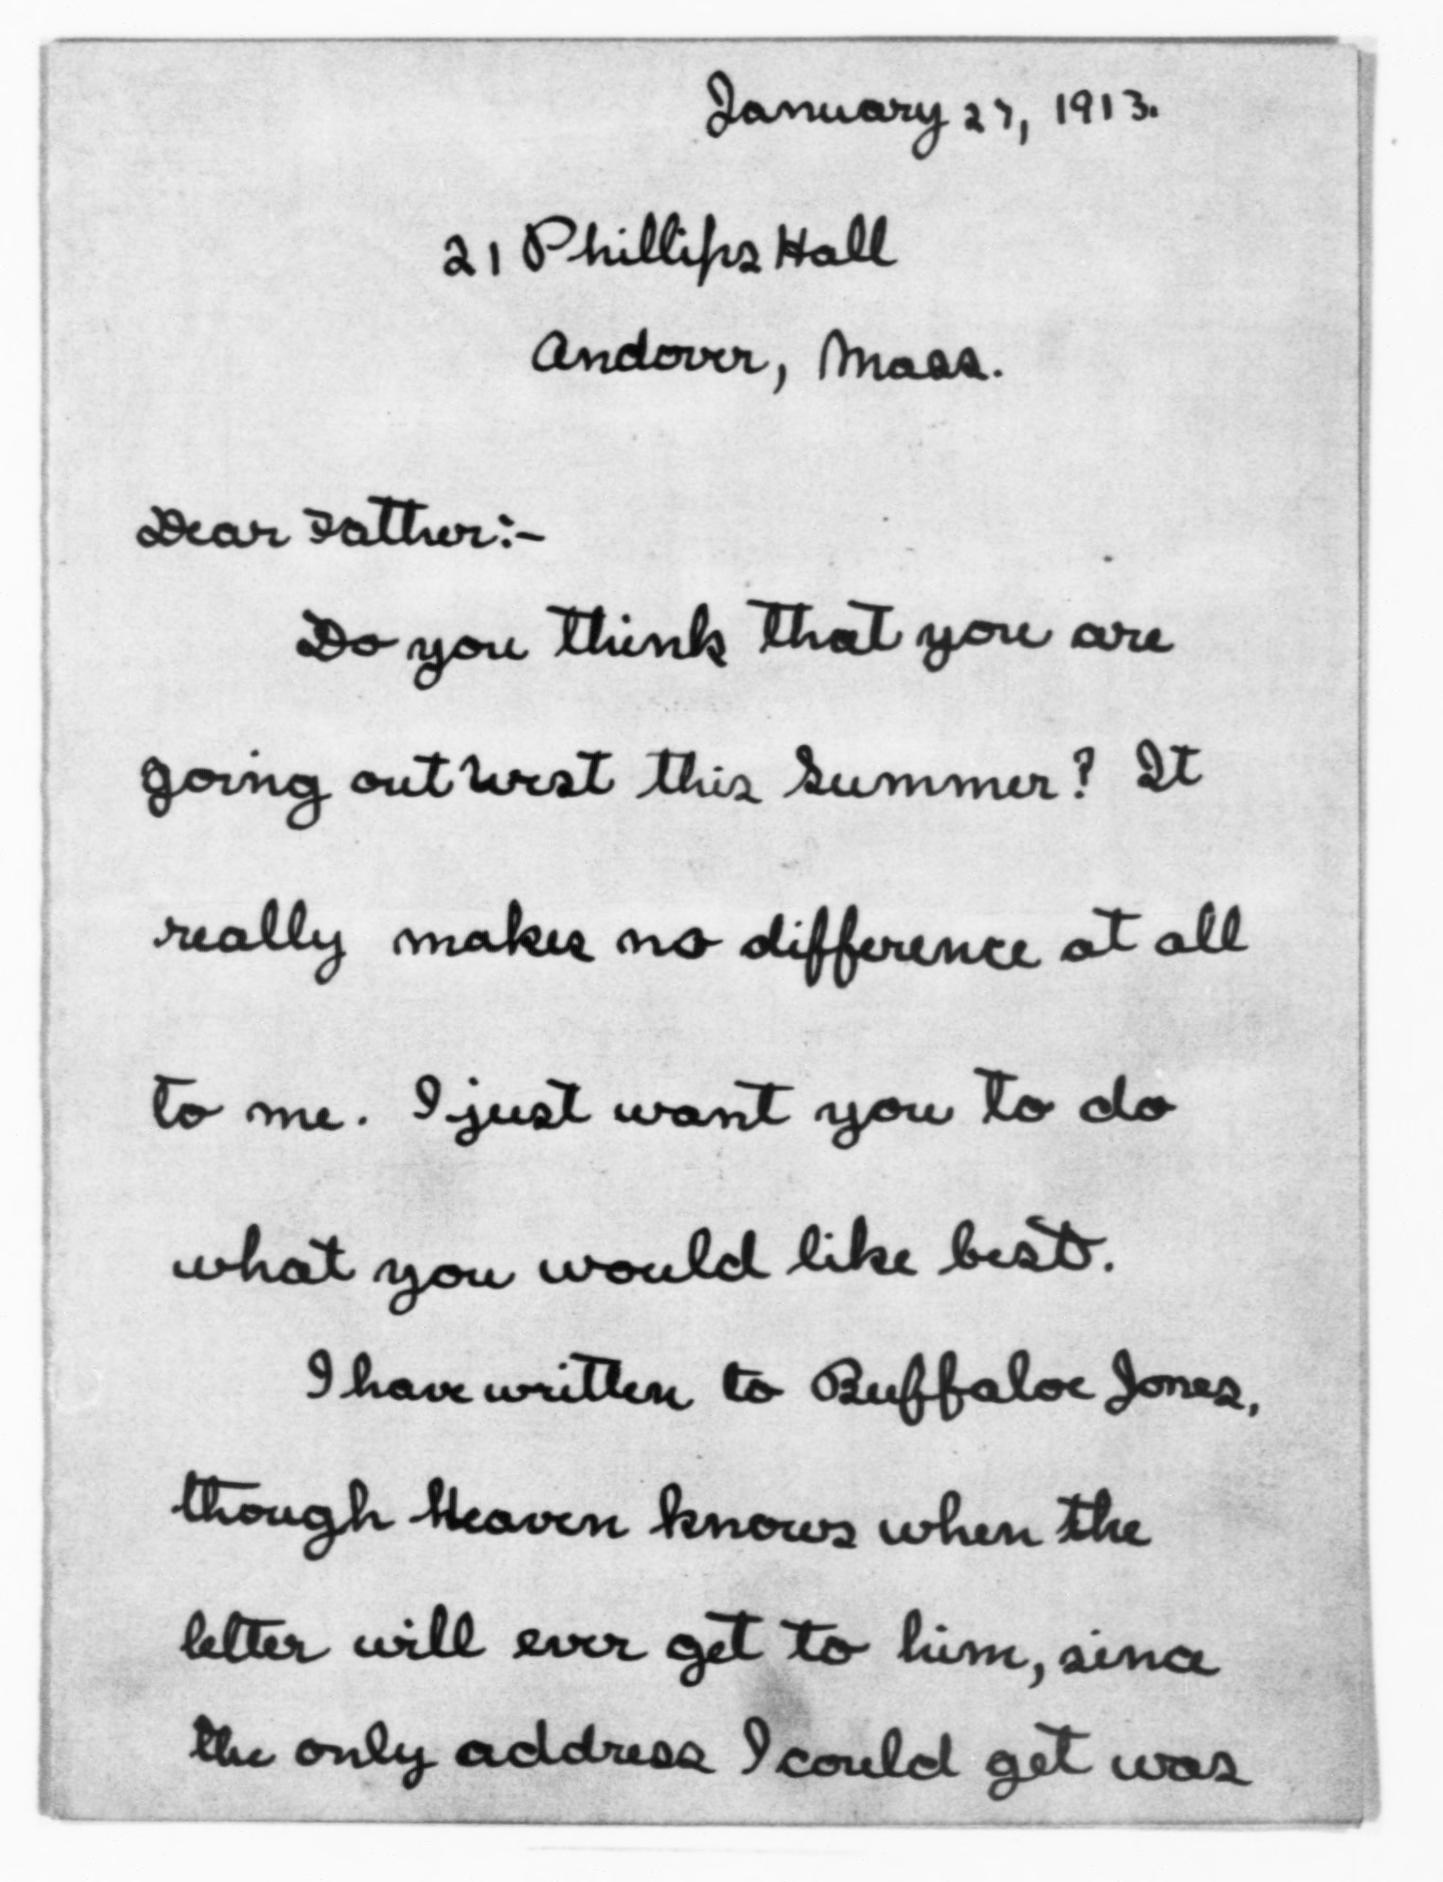 January 27, 1913.
21 Phillips Hall
Andover, Mass.
Dear Father:-
Do you think that you are
going out West this Summer? It
really makes no difference at all
to me. I just want you to do
what you would like best.
I have written to Buffaloe Jones,
though Heaven knows when the
letter will ever get to him, since
the only address I could get was